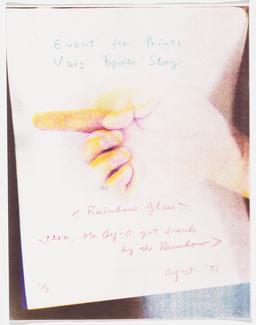 Event for Prints
Very Popular Story
< Rainbow Glass >
< Mr. Ay-O got drunk
by the Rainbow >
ay-O '93
1/3